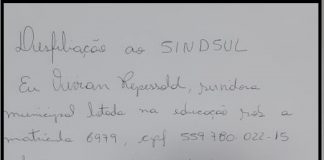 Desfiliação ao SINDSUL
Eu Vivian Repessold, servidora
municipal lotada na educação sob a
matrícula 6979, cpf 559.780.022-15